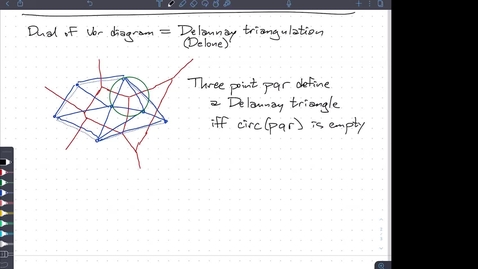 Dual of Vor diagram = Delaunay triangulation
(Delone)
Three point pqr define
a Delaunay triangle
iff circ(pqr) is empty